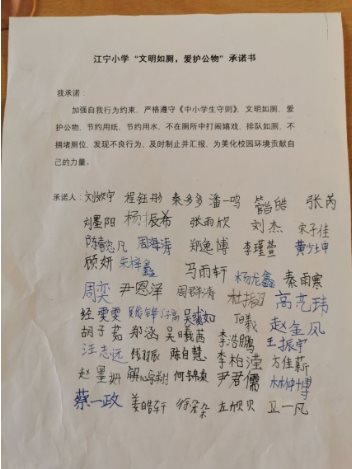 江宁小学“文明如厕，爱护公物”承诺书
我承诺：
加强自我行为约束，严格遵守《中小学生守则》，文明如厕、爱
护公物、节约用纸、节约用水，不在厕所中打闹嬉戏、排队如厕、不
拥堵厕位，发现不良行为、及时制止并汇报，为美化校园环境贡献自
己的力量。
承诺人： 秦多多 潘一鸣 张芮
刘墨阳 杨振希 张雨欣 刘杰 宋子佳
周海涛 郑逸博 李瑾萱
顾妍 朱梓鑫 马雨轩 杨尨鑫 秦雨寒
周奕 尹恩泽 高艺玮
经雯雯 赵金凤
胡子茹 郑涵 吴日茜 李浩鹏 王振宇
汪志远 陈自慧 李柏滢 方佳薪
赵墨妍 何锦爽 尹君儒 林钟博
蔡一政 姜皓轩 徐朵朵 左欣贝 卫一凡